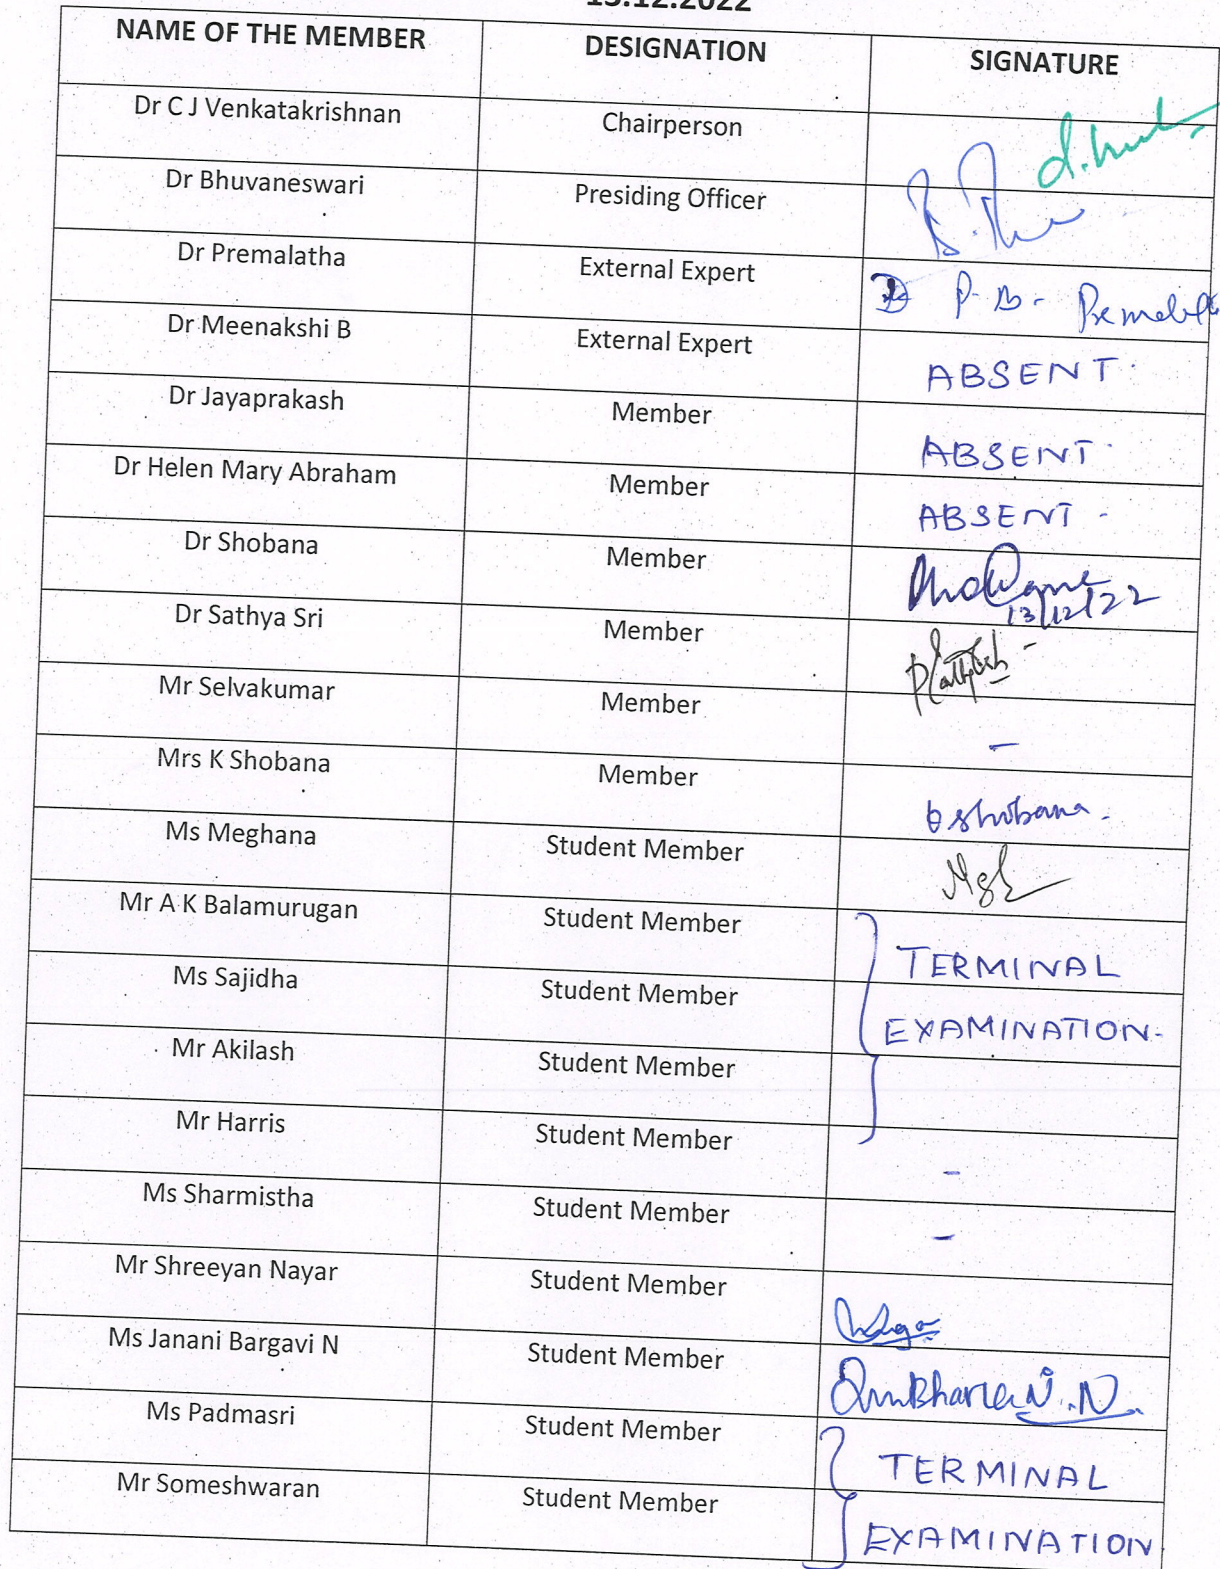 13.12.2022
NAME OF THE MEMBER DESIGNATION SIGNATURE
Dr C J Venkatakrishnan Chairperson
Dr Bhuvaneswari Presiding Officer
Dr Premalatha External Expert P. B.
Dr Meenakshi B External Expert ABSENT.
Dr Jayaprakash Member ABSENT.
Dr Helen Mary Abraham Member ABSENT -
Dr Shobana Member 13/12/22
Dr Sathya Sri Member
Mr Selvakumar Member -
Mrs K Shobana Member shobana.
Ms Meghana Student Member
Mr A K Balamurugan Student Member TERMINAL
Ms Sajidha Student Member EXAMINATION-
Mr Akilash Student Member
Mr Harris Student Member -
Ms Sharmistha Student Member -
Mr Shreeyan Nayar Student Member
Ms Janani Bargavi N Student Member
Ms Padmasri Student Member TERMINAL
Mr Someshwaran Student Member EXAMINATION